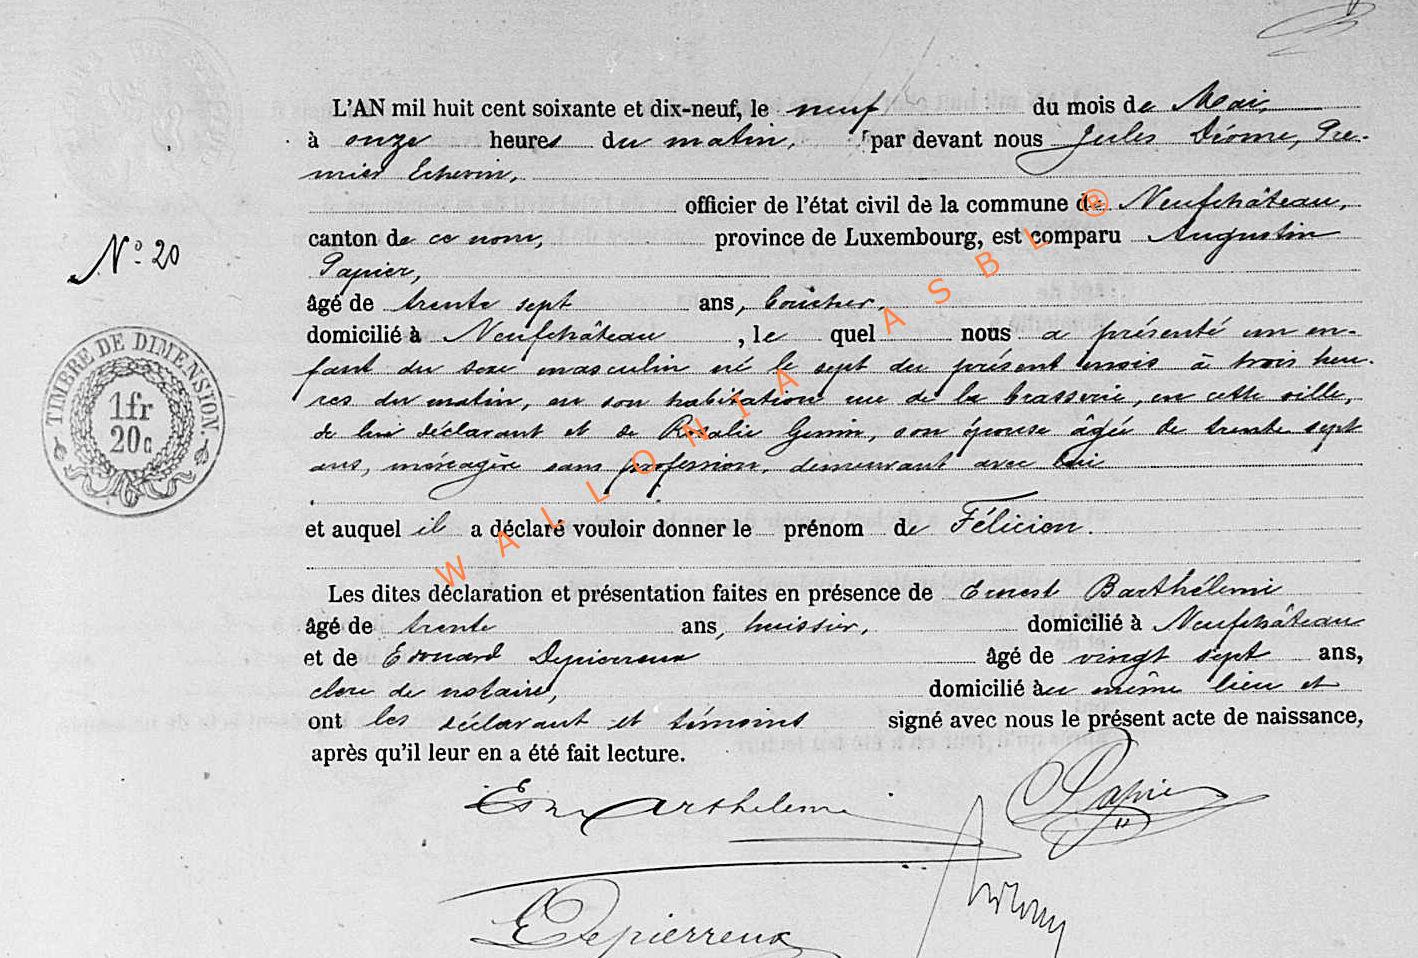 L'AN mil huit cent soixante et dix-neuf, le neuf du mois de Mai,
à onze heures du matin, par devant nous Jules Déome, Pre-
mier Echevin,
officier de l'état civil de la commune de Neufchâteau,
N° 20
canton de ce nom, province de Luxembourg, est comparu Augustin
Papier,
âgé de trente sept ans, boucher,
domicilié à Neufchâteau, le quel nous a présenté un en-
fant du sexe masculin né le sept du présent mois à trois heu-
res du matin, en son habitation rue de la brasserie, en cette ville,
de lui déclarant et de Rosalie Genin, son épouse âgée de trente sept
ans, ménagère sans profession, demeurant avec lui
et auquel il a déclaré vouloir donner le prénom de Félicien.
Les dites déclaration et présentation faites en présence de Ernest Barthélemi
âgé de trente ans, huissier, domicilié à Neufchâteau
et de Edouard Depierreux âgé de vingt sept ans,
clerc de notaire, domicilié au même lieu et
ont les déclarant et témoins signé avec nous le présent acte de naissance,
après qu'il leur en a été fait lecture.
TIMBRE DE DIMENSION
1fr
20c
WALLONIA ASBL ®
Ern Barthelemi
Papier
EDepierreux